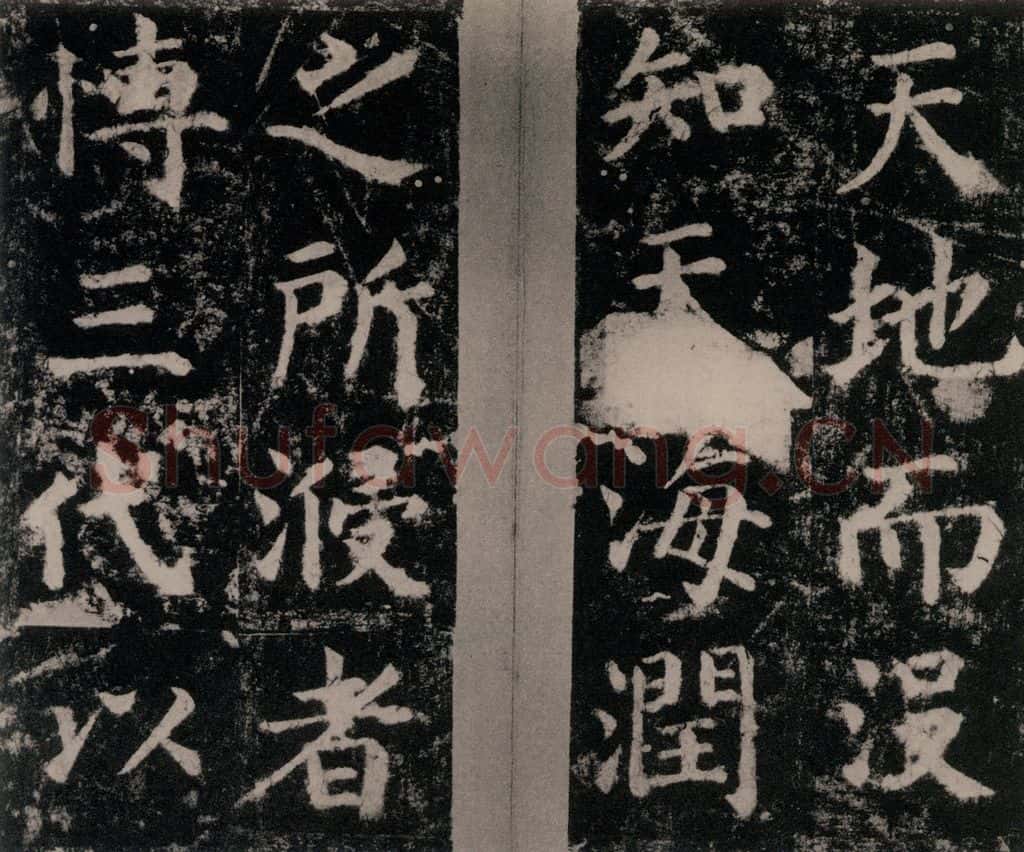 天地而没
知天海潤
之所浸者
愽三代以
Shufawang.CN